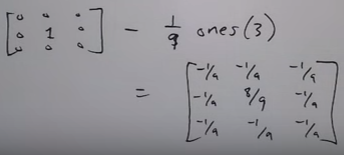 [ 0 0 0
0 1 0 - 1/9 ones(3)
0 0 0 ]
[ -1/9 -1/9 -1/9
= -1/9 8/9 -1/9
-1/9 -1/9 -1/9 ]